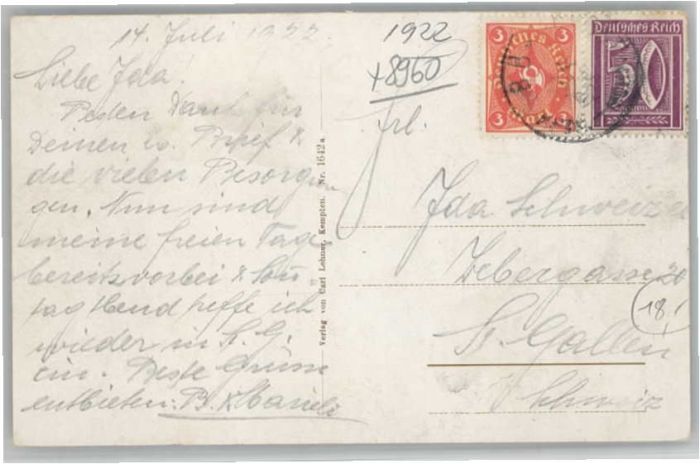 14. Juli 1922
Liebe Ida!
Besten Dank für
Deinen lb. Brief &
die vielen Besorgun
gen. Nun sind
meine freien Tage
bereits vorbei & Sonn
tag Abend treffe ich
wieder in St. G.
ein. Beste Grüsse
entbieten: B. &
Verlag von Carl Lehner, Kempten. Nr. 1642a.
1922
+8960
3 Deutsches Reich 3
3 3
Deutsches Reich
Frl.
Ida Schweizer
Webergasse 20
18.
St. Gallen
Schweiz